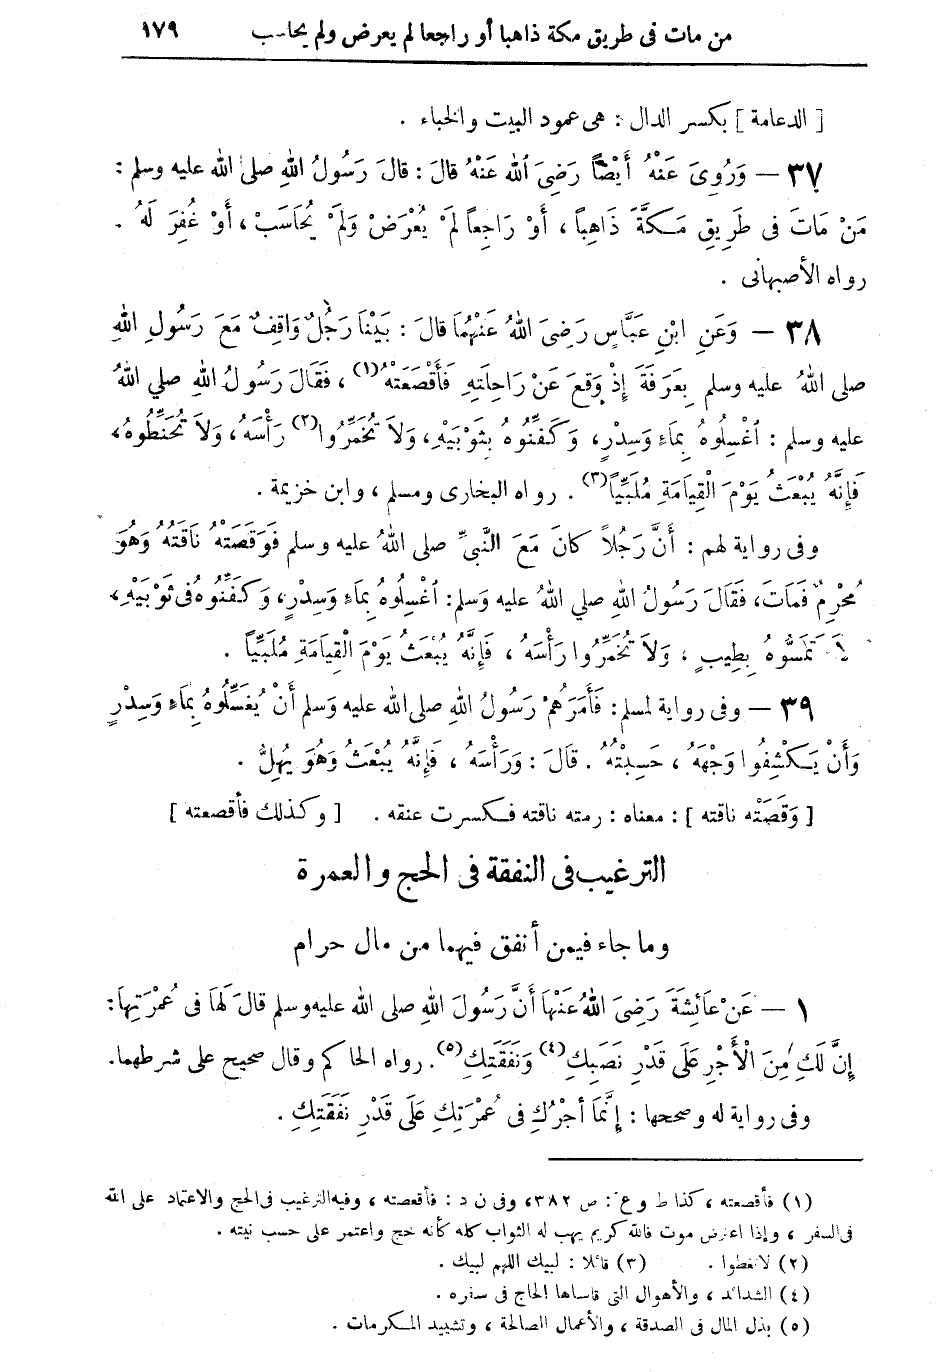 من مات فى طريق مكة ذاهبا أو راجعا لم يعرض ولم يحاسب ١٧٩
[ الدعامة ] بكسر الدال : هى عمود البيت والخباء .
٣٧ — وَرُوِىَ عَنْهُ أَيْضًا رَضِىَ اللهُ عَنْهُ قَالَ : قالَ رَسُولُ اللهِ صلى الله عليه وسلم :
مَنْ مَاتَ فى طَرِيقِ مَكَّةَ ذَاهِبًا ، أَوْ رَاجِعاً لَمْ يُعْرَضْ وَلَمْ يُحَاسَبْ ، أَوْ غُفِرَ لَهُ .
رواه الأصبهانى .
٣٨ — وَعَنِ ابْنِ عَبَّاسٍ رَضِىَ اللهُ عَنْهُمَا قالَ : بَيْنَا رَجُلٌ وَاقِفٌ مَعَ رَسُولِ اللهِ
صلى اللهُ عليه وسلم بِعَرَفَةَ إِذْ وَقَعَ عَنْ رَاحِلَتِهِ فَأَقْصَعَتْهُ (١) ، فَقَالَ رَسُولُ اللهِ صلي اللهُ
عليه وسلم : اُغْسِلُوهُ بِمَاءٍ وَسِدْرٍ، وَكَفِّنُوهُ بِثَوْبَيْهِ، وَلاَ تُخَمِّرُوا (٢) رَأْسَهُ، وَلاَ تُحَنِّطُوهُ،
فَإِنَّهُ يُبْعَثُ يَوْمَ الْقِيَامَةِ مُلَبِّياً (٣) . رواه البخارى ومسلم ، وابن خزيمة .
وفى رواية لهم : أَنَّ رَجُلاً كَانَ مَعَ النَّبِىِّ صلى اللهُ عليه وسلم فَوَقَصَتْهُ نَاقَتُهُ وَهُوَ
مُحْرِمٌ فَمَاتَ، فَقَالَ رَسُولُ اللهِ صلي اللهُ عليه وَسلم: اُغْسِلُوهُ بِمَاءٍ وَسِدْرٍ، وَكَفِّنُوهُ فى ثَوْبَيْهِ،
لاَ تَمَسُّوهُ بِطِيبٍ ، وَلاَ تُخَمِّرُوا رَأْسَهُ ، فَإِنَّهُ يُبْعَثُ يَوْمَ الْقِيَامَةِ مُلَبِّياً .
٣٩ — وفى رواية لمسلم : فَأَمَرَهُمْ رَسُولُ اللهِ صلى الله عليه وَسلم أَنْ يُغَسِّلُوهُ بِمَاءٍ وَسِدْرٍ
وَأَنْ يَكْشِفُوا وَجْهَهُ ، حَسِبْتُهُ . قَالَ : وَرَأْسَهُ ، فَإِنَّهُ يُبْعَثُ وَهُوَ يُهِلُّ .
[ وَقَصَتْه ناقته ] : معناه : رمته ناقته فكسرت عنقه . [ وكذلك فأقصعته ]
الترغيب فى النفقة فى الحج والعمرة
وما جاء فيمن أنفق فيهما من مال حرام
١ — عَنْ عَائِشَةَ رَضِىَ اللهُ عَنْهَا أَنَّ رَسُولَ اللهِ صلى الله عليه وسلم قالَ لَهَا فى عُمْرَتِهَا :
إِنَّ لَكِ مِنَ الْأَجْرِ عَلَى قَدْرِ نَصَبِكِ (٤) وَنَفَقَتِكِ (٥) . رواه الحاكم وقال صحيح على شرطهما.
وفى رواية له وصححها : إِنَّمَا أَجْرُكِ فى عُمْرَتِكِ عَلَى قَدْرِ نَفَقَتِكِ .
(١) فأقصعته ، كذا ط و ع : ص ٣٨٢، وفى ن د : فأقعصته ، وفيه الترغيب فى الحج والاعتماد على الله
فى السفر ، وإذا اعترض موت فالله كريم يهب له الثواب كله كأنه حج واعتمر على حسب نيته .
(٢) لا تغطوا . (٣) قائلا : لبيك اللهم لبيك .
(٤) الشدائد ، والأهوال التى قاساها الحاج فى سفره .
(٥) بذل المال فى الصدقة ، والأعمال الصالحة ، وتشييد المكرمات .